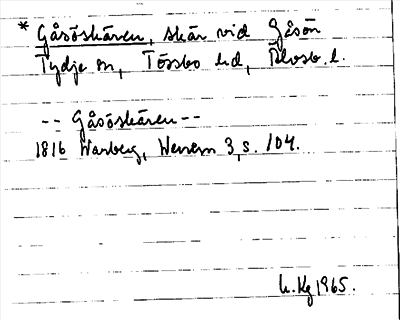 * Gåsöskären, skär vid Gåsön
Tydje sn, Tössbo hd, Älvsb. l.
-- Gåsöskären --
1816 Warberg, Wenern 3, s. 104.
1965.